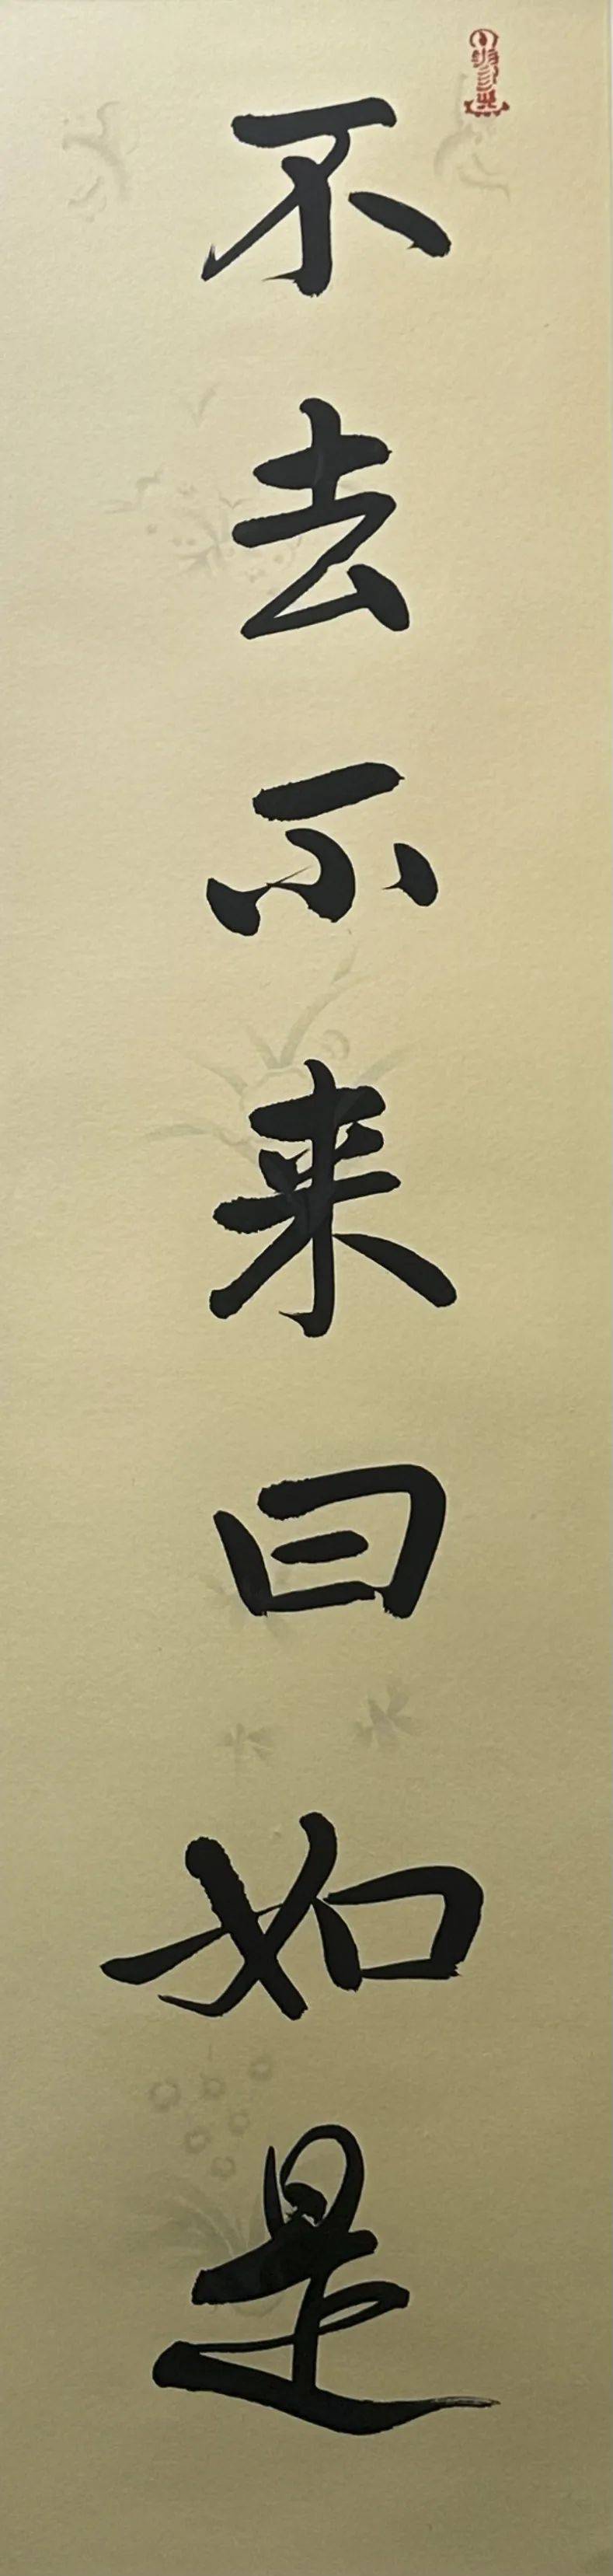 不去不来曰如是